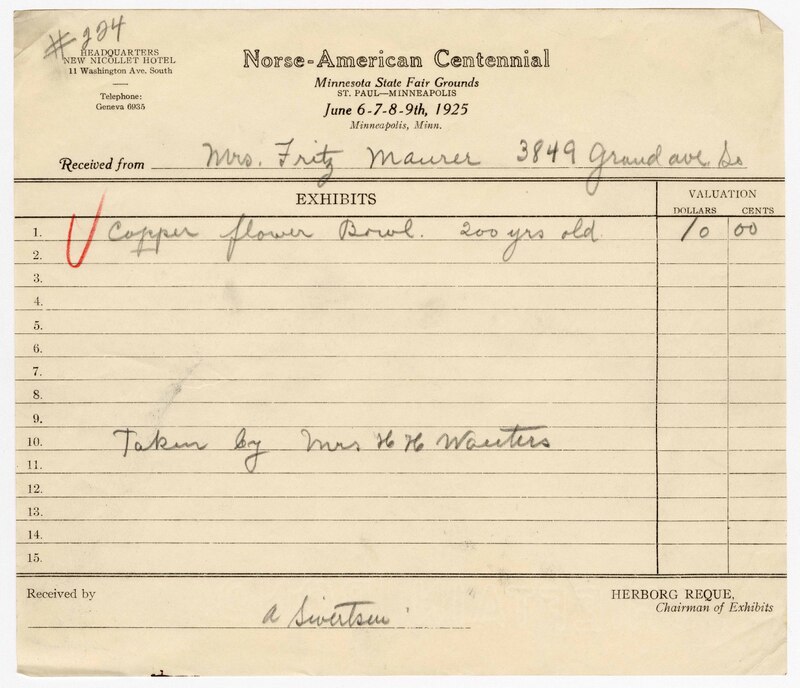 #224
HEADQUARTERS
NEW NICOLLET HOTEL
11 Washington Ave. South
Telephone:
Geneva 6935
Norse-American Centennial
Minnesota State Fair Grounds
ST. PAUL—MINNEAPOLIS
June 6-7-8-9th, 1925
Minneapolis, Minn.
Received from Mrs. Fritz Maurer 3849 Grand ave. So
EXHIBITS VALUATION
DOLLARS CENTS
1. Copper flower Bowl. 200 yrs old 10 00
2.
3.
4.
5.
6.
7.
8.
9.
10. Taken by Mrs H H Wauters
11.
12.
13.
14.
15.
Received by A Sivertsen
HERBORG REQUE,
Chairman of Exhibits